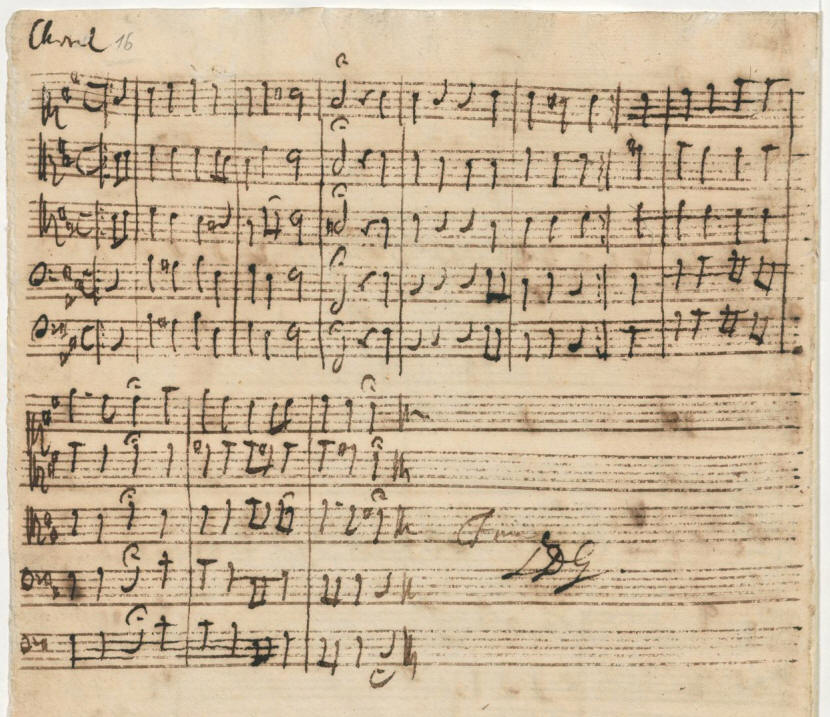 Choral 16
Fine
SDG